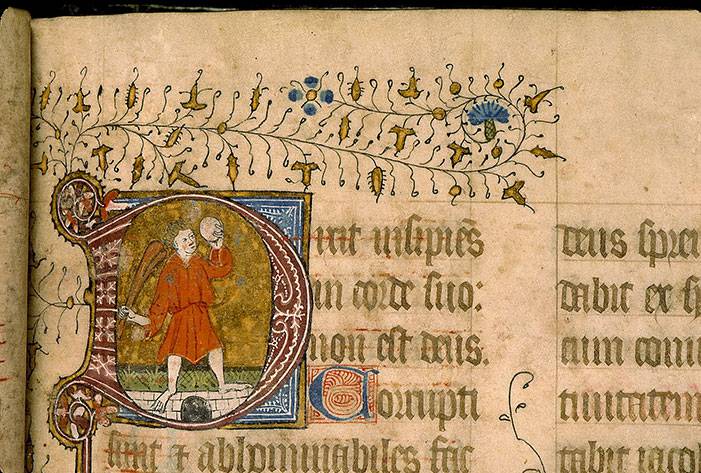 Dixit insipiēs
in corde suo:
non est deus.
Corrupti
sunt ⁊ abhominabiles fac
deus sprei
dabit ex s
cum conui
tiuitatem
tabit iacob